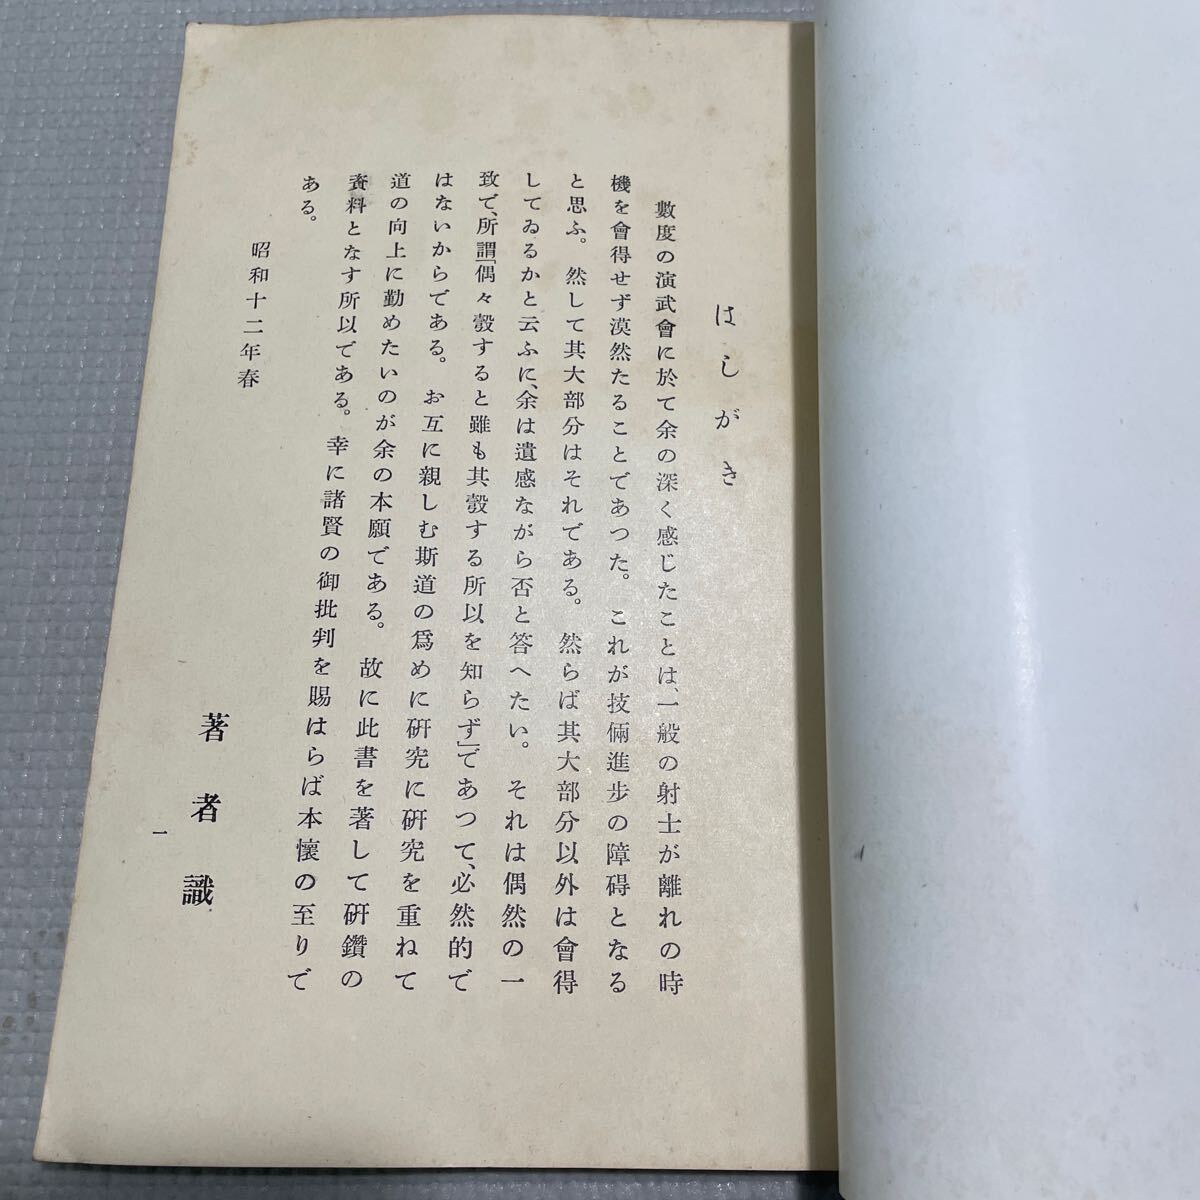 はしがき
數度の演武會に於て余の深く感じたことは、一般の射士が離れの時
機を會得せず漠然たることであつた。これが技倆進步の障碍となる
と思ふ。然して其大部分はそれである。然らば其大部分以外は會得
してゐるかと云ふに、余は遺感ながら否と答へたい。それは偶然の一
致で、所謂「偶々彀すると雖も其彀する所以を知らず」であつて、必然的で
はないからである。お互に親しむ斯道の爲めに硏究に硏究を重ねて
道の向上に勤めたいのが余の本願である。故に此書を著して硏鑽の
資料となす所以である。幸に諸賢の御批判を賜はらば本懷の至りで
ある。
昭和十二年春
著者識
一